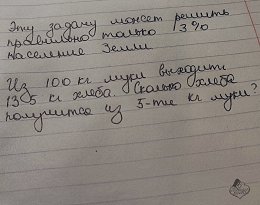 Эту задачу может решить
правильно только 3%
население Земли
Из 100 кг муки выходить
135 кг хлеба. Сколько хлеба
получится из 5-ти кг муки?